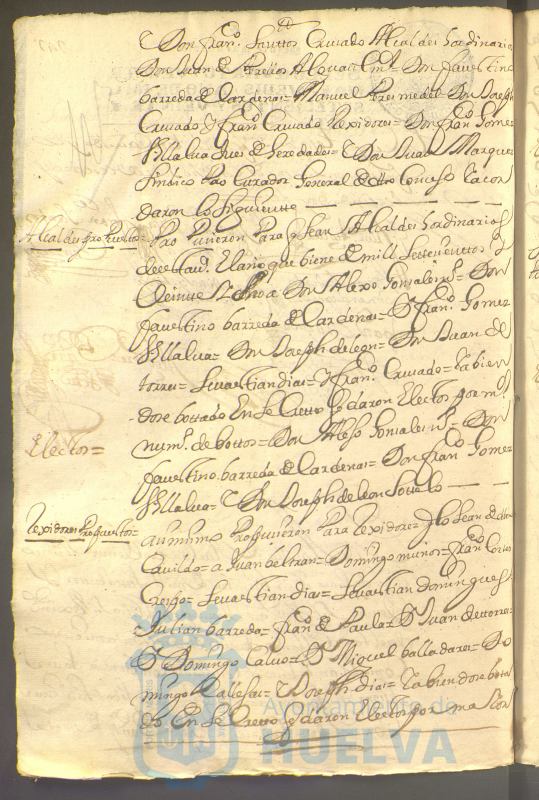 Don Fran.co Santtos Cruzado Alcaldes hordinarios
Don Juan de Alguacil m.r Don faustino
barreda de Cardenas= Manuel Don Joseph
Cruzado y fran.co Cruzado Rexidores= Don fran.co Gomez
Villalua Juez de heredades= Don Juan Marquez
Sindico Pro Curador General de dho Conzejo y acor
daron lo siguiente
Alcaldes Propuestos=
Propusieron Para q Sean Alcaldes hordinarios
de el año que biene de mill Settecientos y
Beinte a Don Alexo Gonsales Don
faustino barreda de Cardenas= D. fran.co Gomez
Villalua= Don Joseph de leon= Don Juan de
torres= Sevastian dias= y fran.co Cruzado= Y abien
dose bottado En Secretto Salieron Electos por m.or
num.o de bottos= Don Alexo Gonsales Don
Electos=
faustino barreda de Cardenas= Don fran.co Gomez
Villalua= Y Don Joseph de leon Sotelo
Rexidores Propuestos=
asimismo Propusieron Para Rexidores q lo Sean de dho
Cavildo= a Juan beltran= Domingo muños= fran.co Cortes
Crespo= Sevastian dias= Sevastian domingues
Julian barreda= fran.co de Paula= D. Juan de torres=
D. Domingo Calvo= D. Miguel balladares= Do
mingo Joseph dias= Y abiendose botta
do En Secretto Salieron Electos por maior
Ayuntamiento de
HUELVA